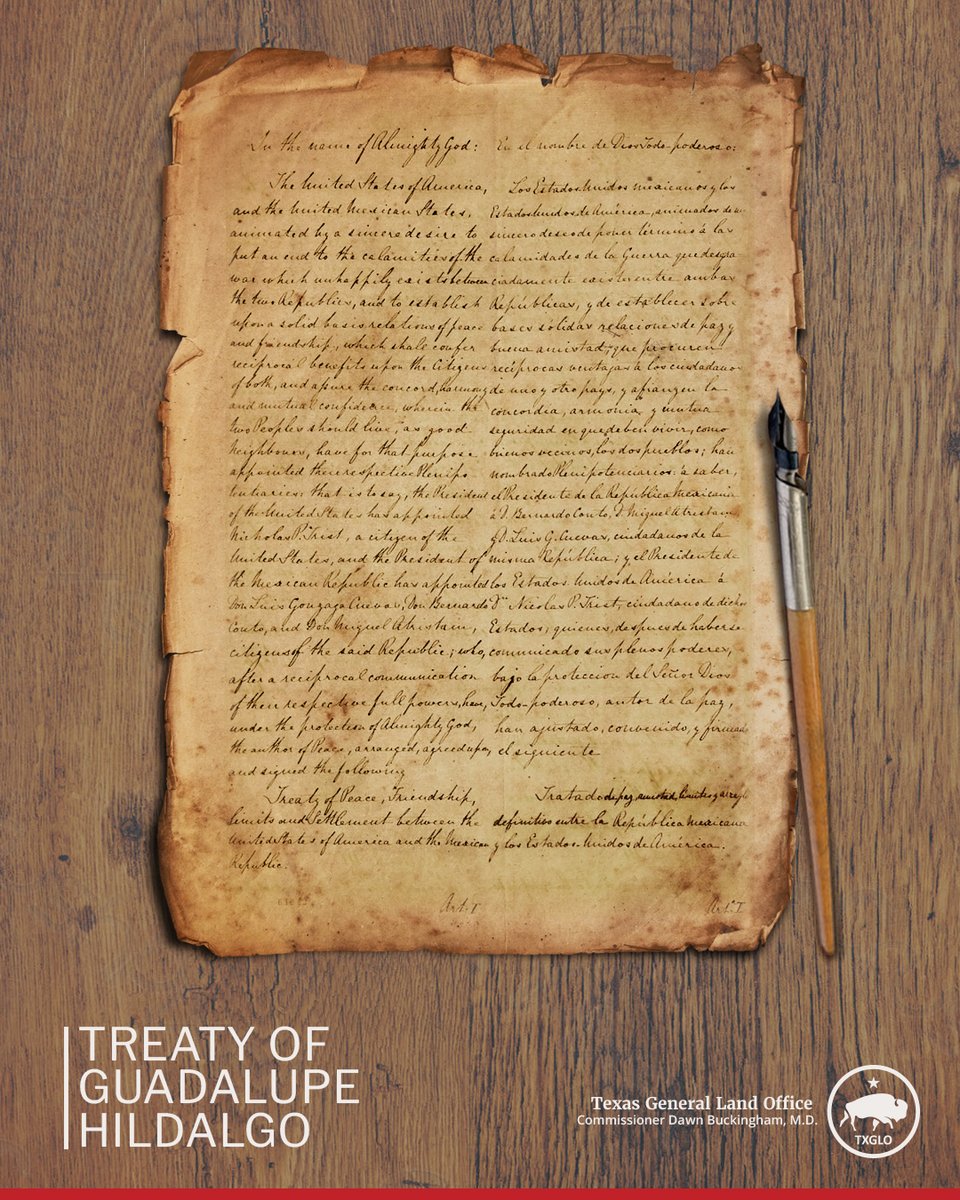 In the name of Almighty God:
The United States of America,
and the United Mexican States,
animated by a sincere desire to
put an end to the calamities of the
war which unhappily exists between
the two Republics, and to establish
upon a solid basis relations of peace
and friendship, which shall confer
reciprocal benefits upon the Citizens
of both, and assure the concord, harmony
and mutual confidence, wherein the
two Peoples should live, as good
Neighbours, have for that purpose
appointed their respective Plenipo
tentiaries: that is to say, the President
of the United States has appointed
Nicholas P. Trist, a citizen of the
United States, and the President of
the Mexican Republic has appointed
Don Luis Gonzaga Cuevas, Don Bernardo
Couto, and Don Miguel Atristain,
citizens of the said Republic; who,
after a reciprocal communication
of their respective full powers, have,
under the protection of Almighty God,
the author of Peace, arranged, agreed upon,
and signed the following
Treaty of Peace, Friendship,
Limits and Settlement between the
United States of America and the Mexican
Republic.
Art. I
En el nombre de Dios Todo-poderoso:
Los Estados Unidos mexicanos y los
Estados Unidos de América, animados de un
sincero deseo de poner término á las
calamidades de la Guerra que desgra
ciadamente existe entre ambas
Repúblicas, y de establecer sobre
bases sólidas relaciones de paz y
buena amistad, que procuren
recíprocas ventajas á los ciudadanos
de uno y otro pays, y afianzen la
concordia, armonía y mutua
seguridad en que deben vivir, como
buenos vecinos, los dos pueblos; han
nombrado Plenipotenciarios: á saber,
el Presidente de la República Mexicana
á D. Bernardo Couto, D. Miguel Atristain,
y D. Luis G. Cuevas, ciudadanos de la
misma República; y el Presidente de
los Estados Unidos de América á
Dn. Nicolas P. Trist, ciudadano de dichos
Estados; quienes, despues de haberse
comunicado sus plenos poderes,
bajo la proteccion del Señor Dios
Todo-poderoso, autor de la paz,
han ajustado, convenido, y firmado
el siguiente
Tratado de paz, amistad, límites y arreglo
definitivo entre la República mexicana
y los Estados-Unidos de América.
Art. I.
TREATY OF
GUADALUPE
HILDALGO
Texas General Land Office
Commissioner Dawn Buckingham, M.D.
TXGLO